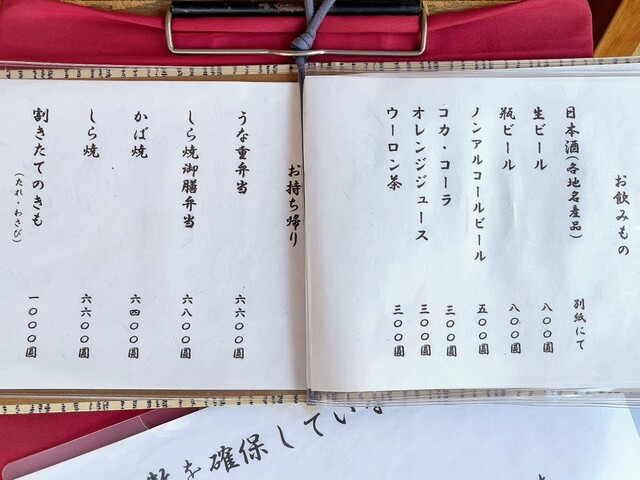 お飲みもの
日本酒(各地名産品) 別紙にて
生ビール 八〇〇圓
瓶ビール 八〇〇圓
ノンアルコールビール 五〇〇圓
コカ・コーラ 三〇〇圓
オレンジジュース 三〇〇圓
ウーロン茶 三〇〇圓
お持ち帰り
うな重弁当 六六〇〇圓
しら焼御膳弁当 六八〇〇圓
かば焼 六四〇〇圓
しら焼 六六〇〇圓
割きたてのきも 一〇〇〇圓
(たれ・わさび)
を確保してい